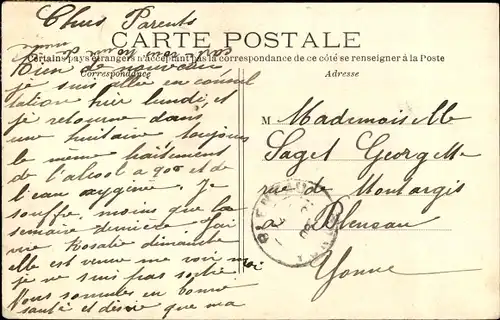 Chers Parents
CARTE POSTALE
Certains pays étrangers n'acceptant pas la correspondance de ce côté se renseigner à la Poste
Correspondance
Adresse
Rien de nouveau
je suis allée en consul
tation hier lundi, et
je retourne dans
une huitaine toujours
le meme traitement
de l'alcool a 90° et de
l'eau oxygène. Je
souffre moins que la
semaine dernière. J'ai
vue Rosalie dimanche
elle est venue me voir moi
je ne suis pas sortie
Nous sommes en bonne
santé et désire que ma
M Mademoiselle
Saget Georgette
rue de Montargis
a Bleneau
Yonne